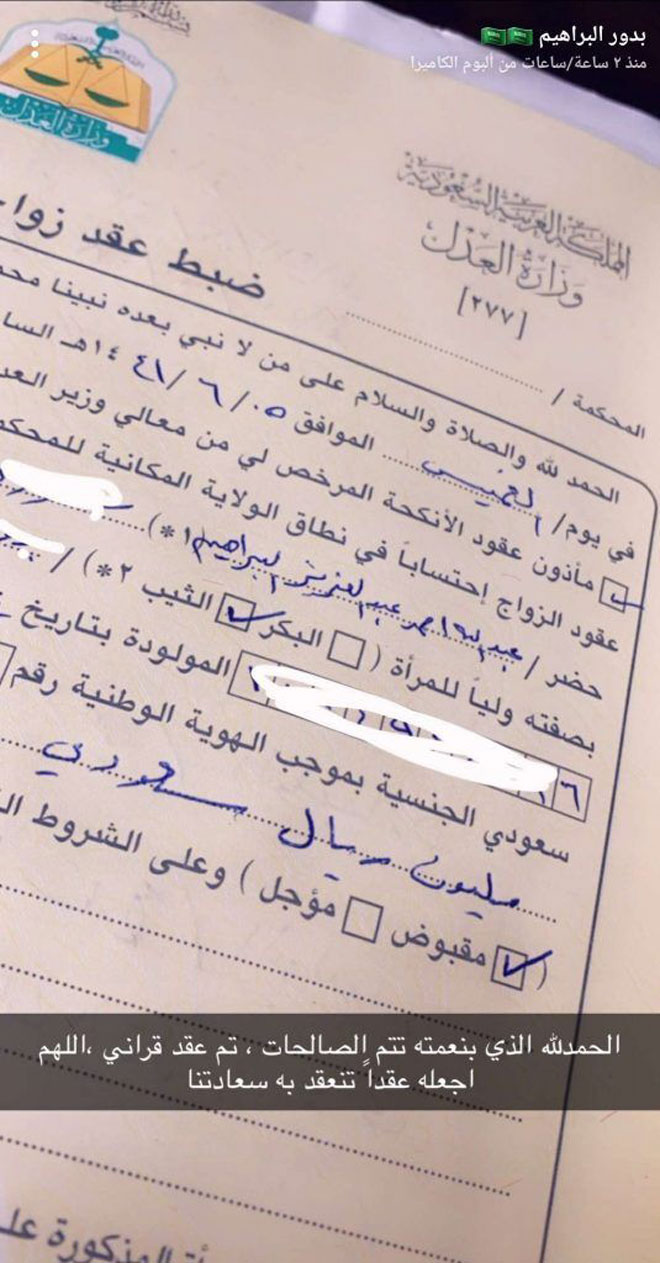 بدور البراهيم
منذ ٢ ساعة/ساعات من ألبوم الكاميرا
وزارة العدل
المملكة العربية السعودية
وزارة العدل
[٢٧٧]
ضبط عقد زوا
المحكمة /
الحمد لله والصلاة والسلام على من لا نبي بعده نبينا محم
في يوم/ الخميس الموافق ٠٥ / ٦ / ١٤٤١هـ السا
مأذون عقود الأنكحة المرخص لي من معالي وزير العد
عقود الزواج إحتساباً في نطاق الولاية المكانية للمحكم
حضر / عبدالعزيز البراهيم (*١
بصفته ولياً للمرأة ( البكر الثيب ٢*) /
المولودة بتاريخ
سعودي الجنسية بموجب الهوية الوطنية رقم
مليون ريال سعودي
( مقبوض مؤجل ) وعلى الشروط ال
الحمدلله الذي بنعمته تتم الصالحات ، تم عقد قراني ،اللهم
اجعله عقداً تنعقد به سعادتنا
المذكورة عل